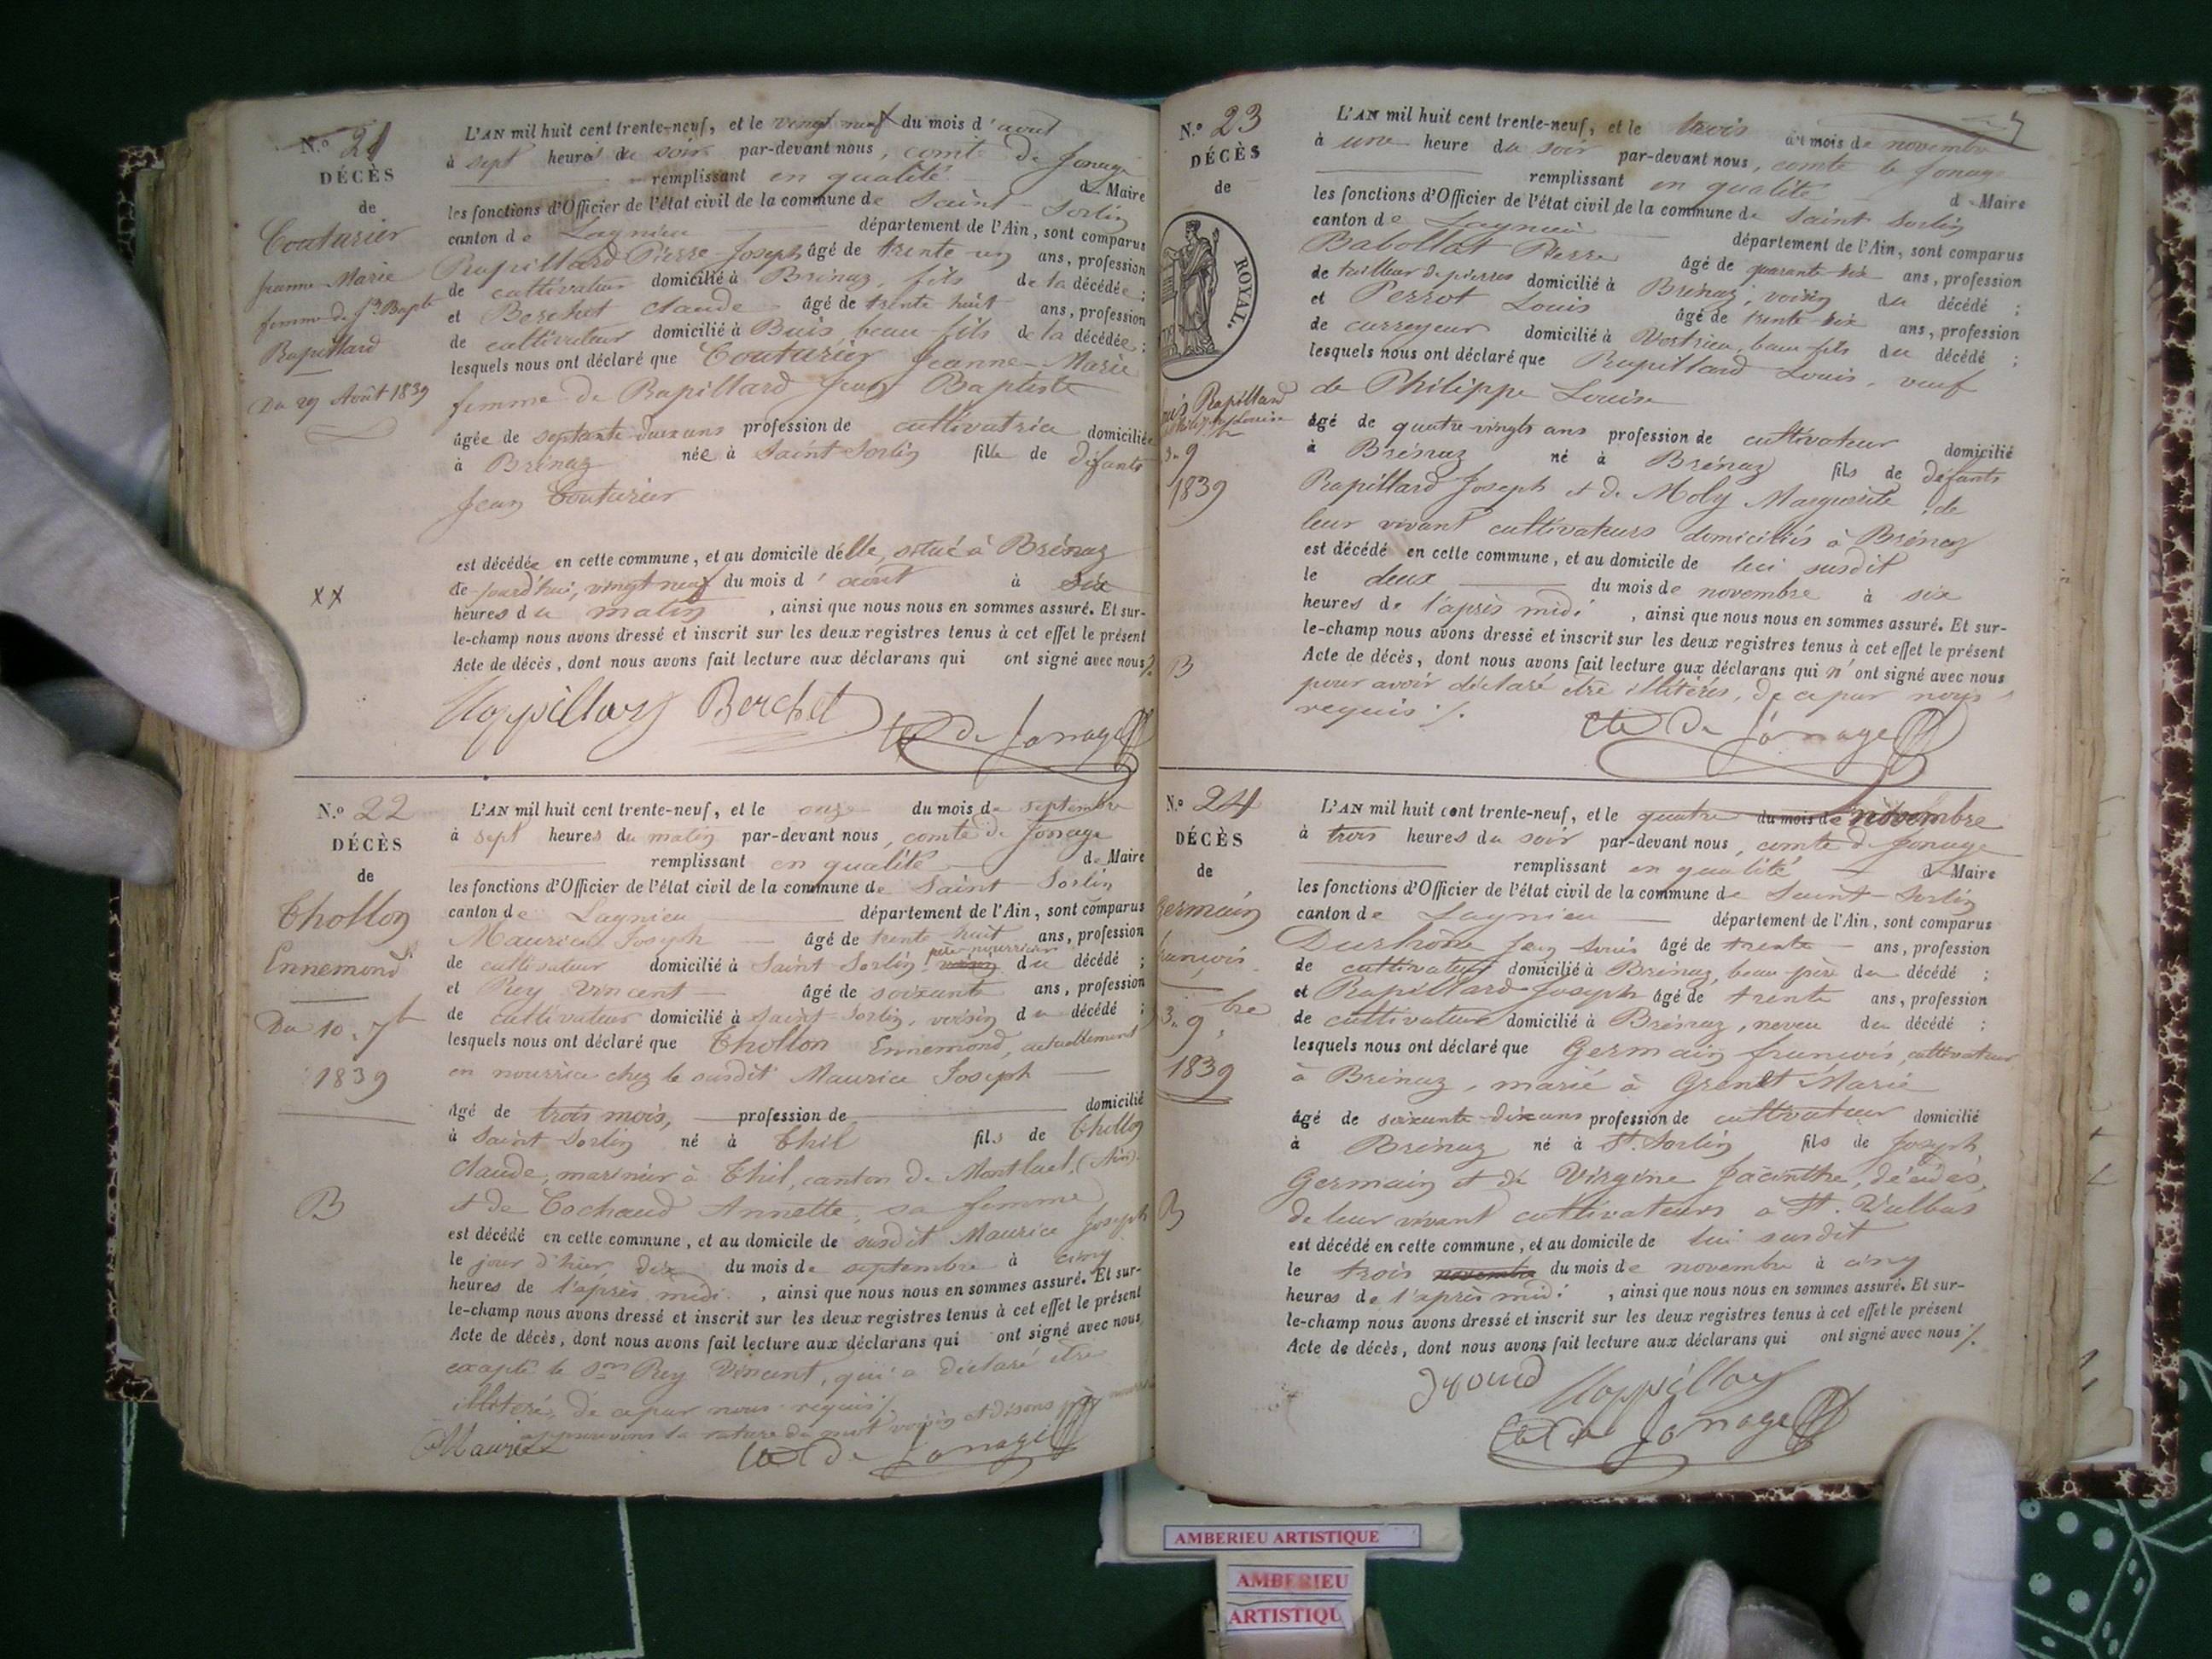 N.º 21
DÉCÈS
de
Couturier
Jeanne Marie
femme de Jn Bapte
Rapillard
Du 29 Août 1839
XX
L'AN mil huit cent trente-neuf, et le vingt neuf du mois d'aout
à sept heures du soir par-devant nous, comte de Jonage
remplissant en qualité de Maire
les fonctions d'Officier de l'état civil de la commune de Saint-Sorlin
canton de Lagnieu département de l'Ain, sont comparus
Rapillard Pierre-Joseph âgé de trente-un ans, profession
de cultivateur domicilié à Brénaz, fils de la décédée;
et Berchet Claude âgé de trente huit ans, profession
de cultivateur domicilié à Buis, beau-fils de la décédée;
lesquels nous ont déclaré que Couturier Jeanne-Marie
femme de Rapillard Jean Baptiste
âgée de septante-deux ans profession de cultivatrice domiciliée
à Brénaz née à Saint Sorlin fille de défunts
Jean Couturier
est décédée en cette commune, et au domicile d'elle, situé à Brénaz
de jourd'hui, vingt neuf du mois d'aout à six
heures du matin, ainsi que nous nous en sommes assuré. Et sur-
le-champ nous avons dressé et inscrit sur les deux registres tenus à cet effet le présent
Acte de décès, dont nous avons fait lecture aux déclarans qui ont signé avec nous ./.
Rappillard Berchet Cte De Jonage
N.º 22
DÉCÈS
de
Thollon
Ennemond
Du 10. 7b
1839
B
L'AN mil huit cent trente-neuf, et le onze du mois de septembre
à sept heures du matin par-devant nous, comte de Jonage
remplissant en qualité de Maire
les fonctions d'Officier de l'état civil de la commune de Saint-Sorlin
canton de Lagnieu département de l'Ain, sont comparus
Maurice Joseph âgé de trente huit ans, profession
père-nourricier
de cultivateur domicilié à Saint Sorlin voisin du décédé;
et Rey Vincent âgé de soixante ans, profession
de cultivateur domicilié à Saint-Sorlin, voisin du décédé;
lesquels nous ont déclaré que Thollon Ennemond, actuellement
en nourrice chez le susdit Maurice Joseph
âgé de trois mois, profession de domicilié
à Saint Sorlin né à Thil fils de Thollon
Claude, marinier à Thil, canton de Montluel, (Ain).
et de Cochaud Annette, sa femme
est décédé en cette commune, et au domicile de susdit Maurice Joseph
le jour d'hier dix du mois de septembre à cinq
heures de l'après midi, ainsi que nous nous en sommes assuré. Et sur-
le-champ nous avons dressé et inscrit sur les deux registres tenus à cet effet le présent
Acte de décès, dont nous avons fait lecture aux déclarans qui ont signé avec nous
excepté le Sr Rey Vincent, qui a déclaré être
illitéré, de ce par nous requis ./.
approuvons la rature du mot voisin et disons père
Maurice Cte De Jonage
N.º 23
DÉCÈS
de
ROYAL.
Louis Rapillard
1839
B
L'AN mil huit cent trente-neuf, et le trois du mois de novembre
à une heure du soir par-devant nous, comte de Jonage
remplissant en qualité de Maire
les fonctions d'Officier de l'état civil de la commune de Saint Sorlin
canton de Lagnieu département de l'Ain, sont comparus
Babollat Pierre âgé de quarante-six ans, profession
de tailleur de pierres domicilié à Brénaz, voisin du décédé;
et Perrot Louis âgé de trente-six ans, profession
de corroyeur domicilié à Vertrieu, beau-fils du décédé;
lesquels nous ont déclaré que Rapillard Louis, veuf
de Philippe Louise
âgé de quatre-vingts ans profession de cultivateur domicilié
à Brénaz né à Brénaz fils de défunts
Rapillard Joseph et de Moly Marguerite, de
leur vivant cultivateurs domiciliés à Brénaz
est décédé en cette commune, et au domicile de lui susdit
le deux du mois de novembre à six
heures de l'après midi, ainsi que nous nous en sommes assuré. Et sur-
le-champ nous avons dressé et inscrit sur les deux registres tenus à cet effet le présent
Acte de décès, dont nous avons fait lecture aux déclarans qui n'ont signé avec nous
pour avoir déclaré être illitérés, de ce par nous
requis ./.
Cte De Jonage
N.º 24
DÉCÈS
de
Germain
françois
3. 9bre
1839
B
L'AN mil huit cent trente-neuf, et le quatre du mois de novembre
à trois heures du soir par-devant nous, comte de Jonage
remplissant en qualité de Maire
les fonctions d'Officier de l'état civil de la commune de Saint-Sorlin
canton de Lagnieu département de l'Ain, sont comparus
Durhône Jean Louis âgé de trente ans, profession
de cultivateur domicilié à Brénaz, beau-père du décédé;
et Rapillard Joseph âgé de trente ans, profession
de cultivateur domicilié à Brénaz, neveu du décédé;
lesquels nous ont déclaré que Germain françois, cultivateur
à Brénaz, marié à Grenet Marie
âgé de soixante-dix ans profession de cultivateur domicilié
à Brénaz né à St. Sorlin fils de Joseph
Germain et de Virgine Jacinthe, décédés,
de leur vivant cultivateurs à St. Vulbas
est décédé en cette commune, et au domicile de lui susdit
le trois novembre du mois de novembre à cinq
heures de l'après midi, ainsi que nous nous en sommes assuré. Et sur-
le-champ nous avons dressé et inscrit sur les deux registres tenus à cet effet le présent
Acte de décès, dont nous avons fait lecture aux déclarans qui ont signé avec nous ./.
Rappillard
Cte De Jonage
AMBERIEU ARTISTIQUE
AMBERIEU
ARTISTIQU